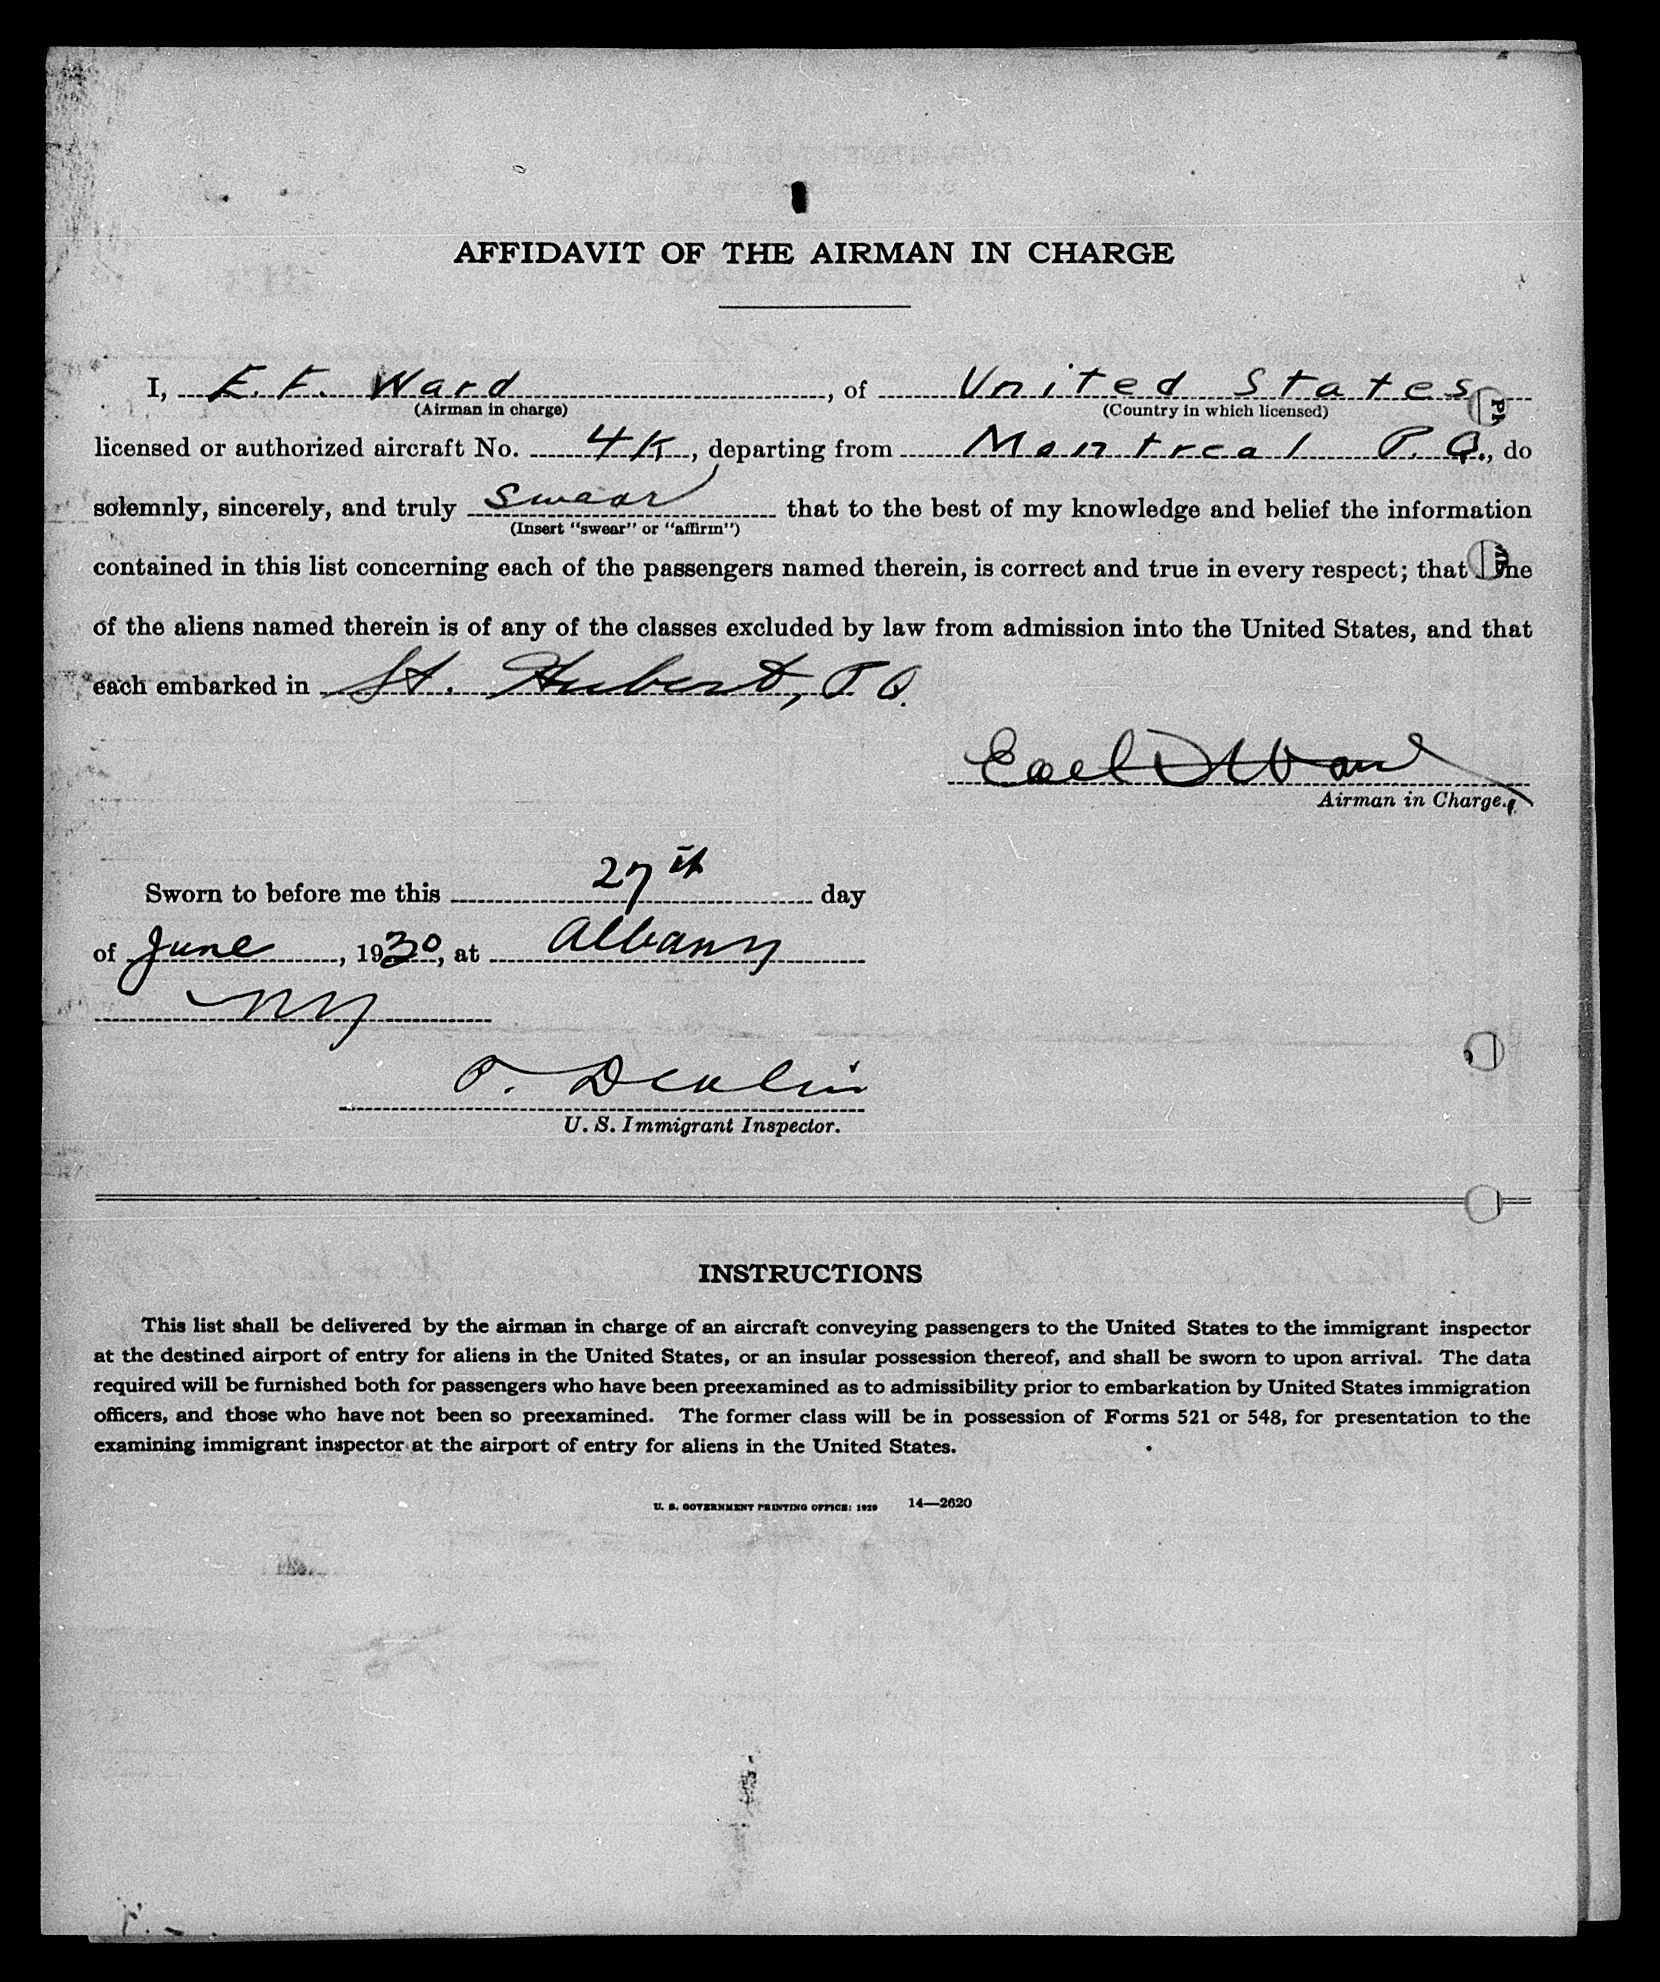 AFFIDAVIT OF THE AIRMAN IN CHARGE
I, E. F. Ward, of United States
(Airman in charge) (Country in which licensed)
licensed or authorized aircraft No. 4K, departing from Montreal P.Q., do
solemnly, sincerely, and truly swear that to the best of my knowledge and belief the information
(Insert "swear" or "affirm")
contained in this list concerning each of the passengers named therein, is correct and true in every respect; that ne
of the aliens named therein is of any of the classes excluded by law from admission into the United States, and that
each embarked in St. Hubert, P.Q.
Ward
Airman in Charge.
Sworn to before me this 27th day
of June, 1930, at Albany
NY
U. S. Immigrant Inspector.
INSTRUCTIONS
This list shall be delivered by the airman in charge of an aircraft conveying passengers to the United States to the immigrant inspector
at the destined airport of entry for aliens in the United States, or an insular possession thereof, and shall be sworn to upon arrival. The data
required will be furnished both for passengers who have been preexamined as to admissibility prior to embarkation by United States immigration
officers, and those who have not been so preexamined. The former class will be in possession of Forms 521 or 548, for presentation to the
examining immigrant inspector at the airport of entry for aliens in the United States.
U. S. GOVERNMENT PRINTING OFFICE: 1929 14—2620